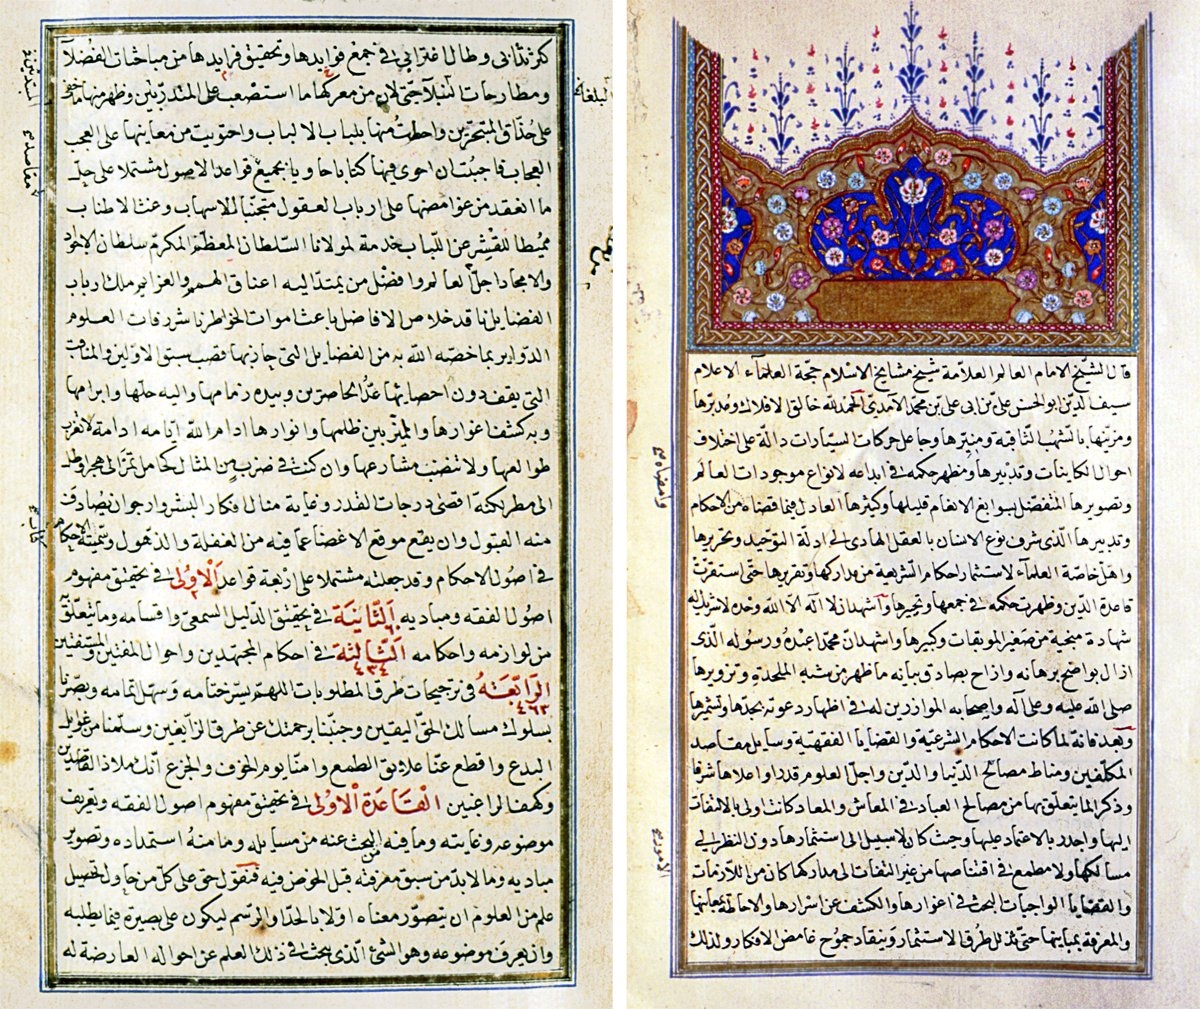 قال الشيخ الامام العالم العلامة شيخ مشايخ الاسلام حجة العلماء الاعلام
سيف الدين ابو الحسن على بن ابى على بن محمد الآمدى الحمد لله خالق الافلاك ومدبرها
ومزينها بالشهب الثاقبة ومنيرها وجاعل حركات السيارات دالة على اختلاف
احوال الكاينات وتدبيرها ومظهر حكمه فى ابداعه لانواع موجودات العالم
وتصويرها المتفضل بسوابغ الانعام قليلها وكثيرها العادل فيما قضاه من الاحكام
وامضاه
وتدبيرها الذى شرف نوع الانسان بالعقل الهادى الى ادلة التوحيد وتحريرها
واهل خاصة العلماء لاستثمار احكام الشريعة من مداركها وتقريرها حتى استقرت
قاعدة الدين وظهرت حكمه فى جمعها وتحبيرها واشهد ان لا اله الا الله وحده لا شريك له
شهادة منجية من صغير الموبقات وكبيرها واشهد ان محمدا عبده ورسوله الذى
ازال بواضح برهانه وازاح بصادق بيانه ما ظهر من شبه الملحدة وتزويرها
صلى الله عليه وعلى آله واصحابه الموازرين له فى اظهار دعوته بحدها وتشميرها
وبعد فانه لما كانت الاحكام الشرعية والقضايا الفقهية وسايل مقاصد
المكلفين ومناط مصالح الدنيا والدين واجل العلوم قدرا واعلاها شرفا
وذكرا لما يتعلق بها من مصالح العباد فى المعاش والمعاد كانت اولى بالالتفات
اليها واجدر بالاعتماد عليها وحيث كان لا سبيل الى استثمارها دون النظر فى
مسالكها ولا مطمع فى اقتناصها من غير التفات الى مداركها كان من اللازمات
والقضايا الواجبات البحث فى اغوارها والكشف عن اسرارها والاحاطة بمعانيها
والمعرفة بمبانيها حتى تذلل طرق الاستثمار وينقاد جموح غامض الافكار ولذلك
كثر تدآبى وطال اغترابى فى جمع فوايدها وتحقيق فرايدها من مباحثات الفضلآ
ومطارحات النبلآ حتى لان من معركها ما استصعب على المتدربين وظهر منها ما خفى
على حذاق المتبحرين واحطت منها بلباب الالباب واحتويت من معانيها على العجب
العجاب فاحببت ان احوى فيها كتابا حاويا بجميع قواعد الاصول مشتملا على حل
ما انعقد من غوامضها على ارباب العقول متجنبا للاسهاب وغث الاطناب
مميطا للقشر عن اللباب خدمة لمولانا السلطان المعظم المكرم سلطان الاجواد
والامجاد اجل العالم وافضل من يمتد اليه اعناق الهمم والعزايم ملك ارباب
الفضايل ناقد خلاص الافاضل باعث اموات الخواطر ناشر رفات العلوم
الدواير بما خصه الله به من الفضايل التى حاز بها قصب سبق الاولين والمناقب
التى يقف دون احصايها عد الحاصرين وبيده زمامها واليه حلها وابرامها
وبه كشف اغوارها والمميز بين ظلمها وانوارها ادام الله ايامه ادامة لا تغرب
طوالعها ولا تنضب مشارعها وان كنت فى ضرب من المثال كحامل تمر الى هجر او طل
الى مطر لكنه اقصى درجات القدر وغاية منال افكار البشر وارجو ان يصادف
منه القبول وان يقع موقع الاغضا عما فيه من الغفلة والذهول وسميته الاحكام
فى اصول الاحكام وقد جعلته مشتملا على اربعة قواعد الاولى فى تحقيق مفهوم
اصول الفقه ومباديه الثانية فى تحقيق الدليل السمعى واقسامه وما يتعلق به
من لوازمه واحكامه الثالثة فى احكام المجتهدين واحوال المفتين والمستفتين
٤٣٤
الرابعة فى ترجيحات طرق المطلوبات اللهم يسر ختامه وسهل اتمامه وبصرنا
٤٦٣
بسلوك مسالك الحق اليقين وجنبنا برحمتك عن طرق الزايغين وسلمنا من غوايل
البدع واقطع عنا علايق الطمع وامنا يوم الخوف والجزع انك ملاذ القاصدين
وكهف الراغبين القاعدة الاولى فى تحقيق مفهوم اصول الفقه وتعريف
موضوعه وغايته وما فيه البحث عنه من مسايله وما منه استمداده وتصوير
مباديه وما لا بد من سبق معرفته قبل الخوض فيه فنقول حق على كل من حاول تحصيل
علم من العلوم ان يتصور معناه اولا بالحد او الرسم ليكون على بصيرة فيما يطلبه
وان يعرف موضوعه وهو الشئ الذى يبحث فى ذلك العلم عن احواله العارضة له